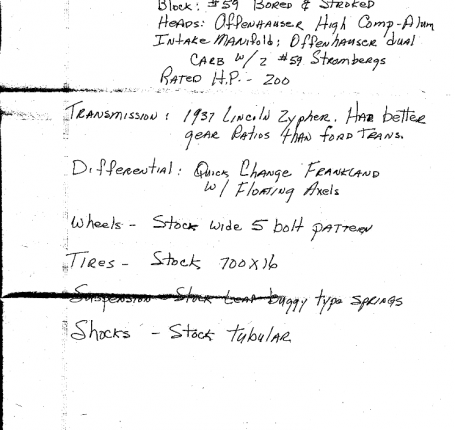 Block: #59 Bored & Stroked
Heads: Offenhauser High Comp-Alum
Intake Manifold: Offenhauser dual
Carb w/2 #59 Strombergs
Rated H.P. - 200
Transmission: 1937 Lincoln Zypher. Has better
gear Ratios than ford Trans.
Differential: Quick Change Frankland
w/ Floating Axels
Wheels - Stock wide 5 bolt pattern
Tires - Stock 700X16
Suspension - Stock Leaf buggy type springs
Shocks - Stock tubular